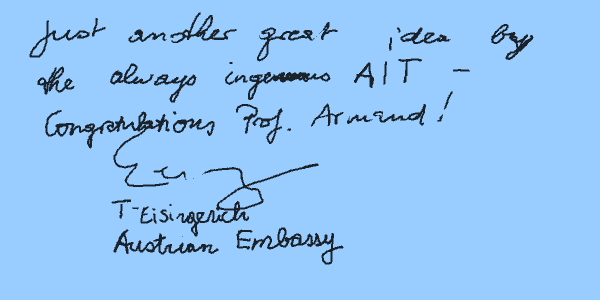 Just another great idea by
the always ingenuous AIT -
Congratulations Prof. Armand!
T-Eisingerich
Austrian Embassy